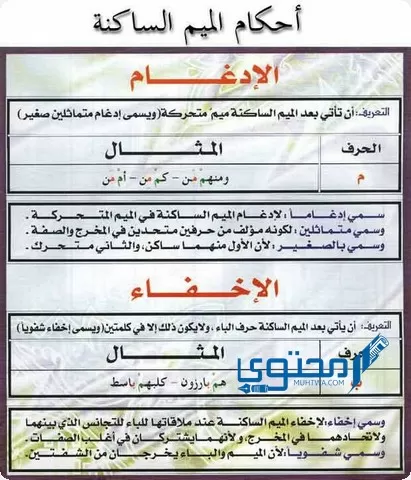 أحكام الميم الساكنة
الإدغـــــام
التعريف: أن تأتي بعد الميم الساكنة ميم متحركة (ويسمى إدغام متماثلين صغير)
الحرف المثـــــال
م ومنهمْ مَن - كمْ مِن - أمْ مَن
سمي إدغاماً: لإدغام الميم الساكنة في الميم المتحركة .
وسمي متماثلين: لكونه مؤلف من حرفين متحدين في المخرج والصفة .
وسمي بالصغير: لأن الأول منهما ساكن، والثاني متحرك .
الإخفـــــاء
التعريف: أن يأتي بعد الميم الساكنة حرف الباء، ولا يكون ذلك إلا في كلمتين (ويسمى إخفاء شفوياً)
المثـــــال
همْ بارزون - كلبهمْ باسط
محتوى
MUHTWA.COM
وسمي إخفاء: لإخفاء الميم الساكنة عند ملاقاتها للباء للتجانس الذي بينهما
ولاتحادهما في المخرج، ولأنهما يشتركان في أغلب الصفات .
وسمي شفوياً: لأن الميم والباء يخرجان من الشفتين.